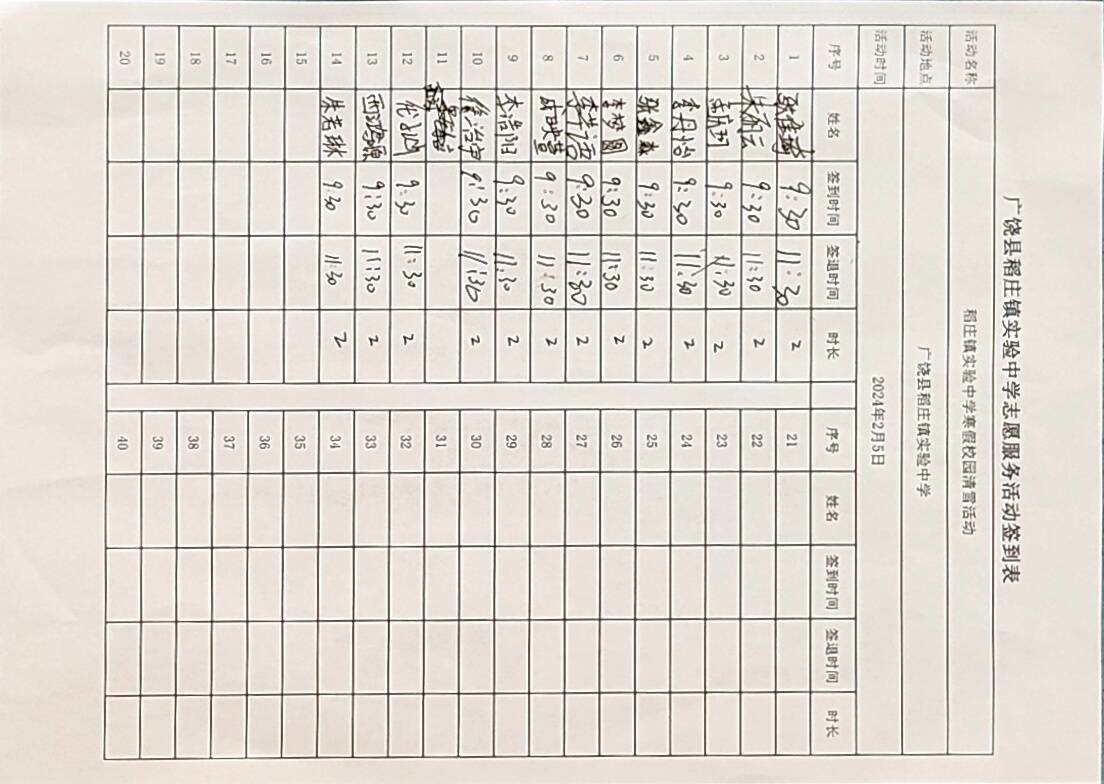 广饶县稻庄镇实验中学志愿服务活动签到表
活动名称 稻庄镇实验中学寒假校园清雪活动
活动地点 广饶县稻庄镇实验中学
活动时间 2024年2月5日
序号 姓名 签到时间 签退时间 时长 序号 姓名 签到时间 签退时间 时长
1 9:30 11:30 2 21
2 9:30 11:30 2 22
3 9:30 11:30 2 23
4 9:30 11:30 2 24
5 张鑫森 9:30 11:30 2 25
6 李梦圆 9:30 11:30 2 26
7 9:30 11:30 2 27
8 成映萱 9:30 11:30 2 28
9 李浩阳 9:30 11:30 2 29
10 9:30 11:30 2 30
11 31
12 9:30 11:30 2 32
13 9:30 11:30 2 33
14 朱若琳 9:30 11:30 2 34
15 35
16 36
17 37
18 38
19 39
20 40